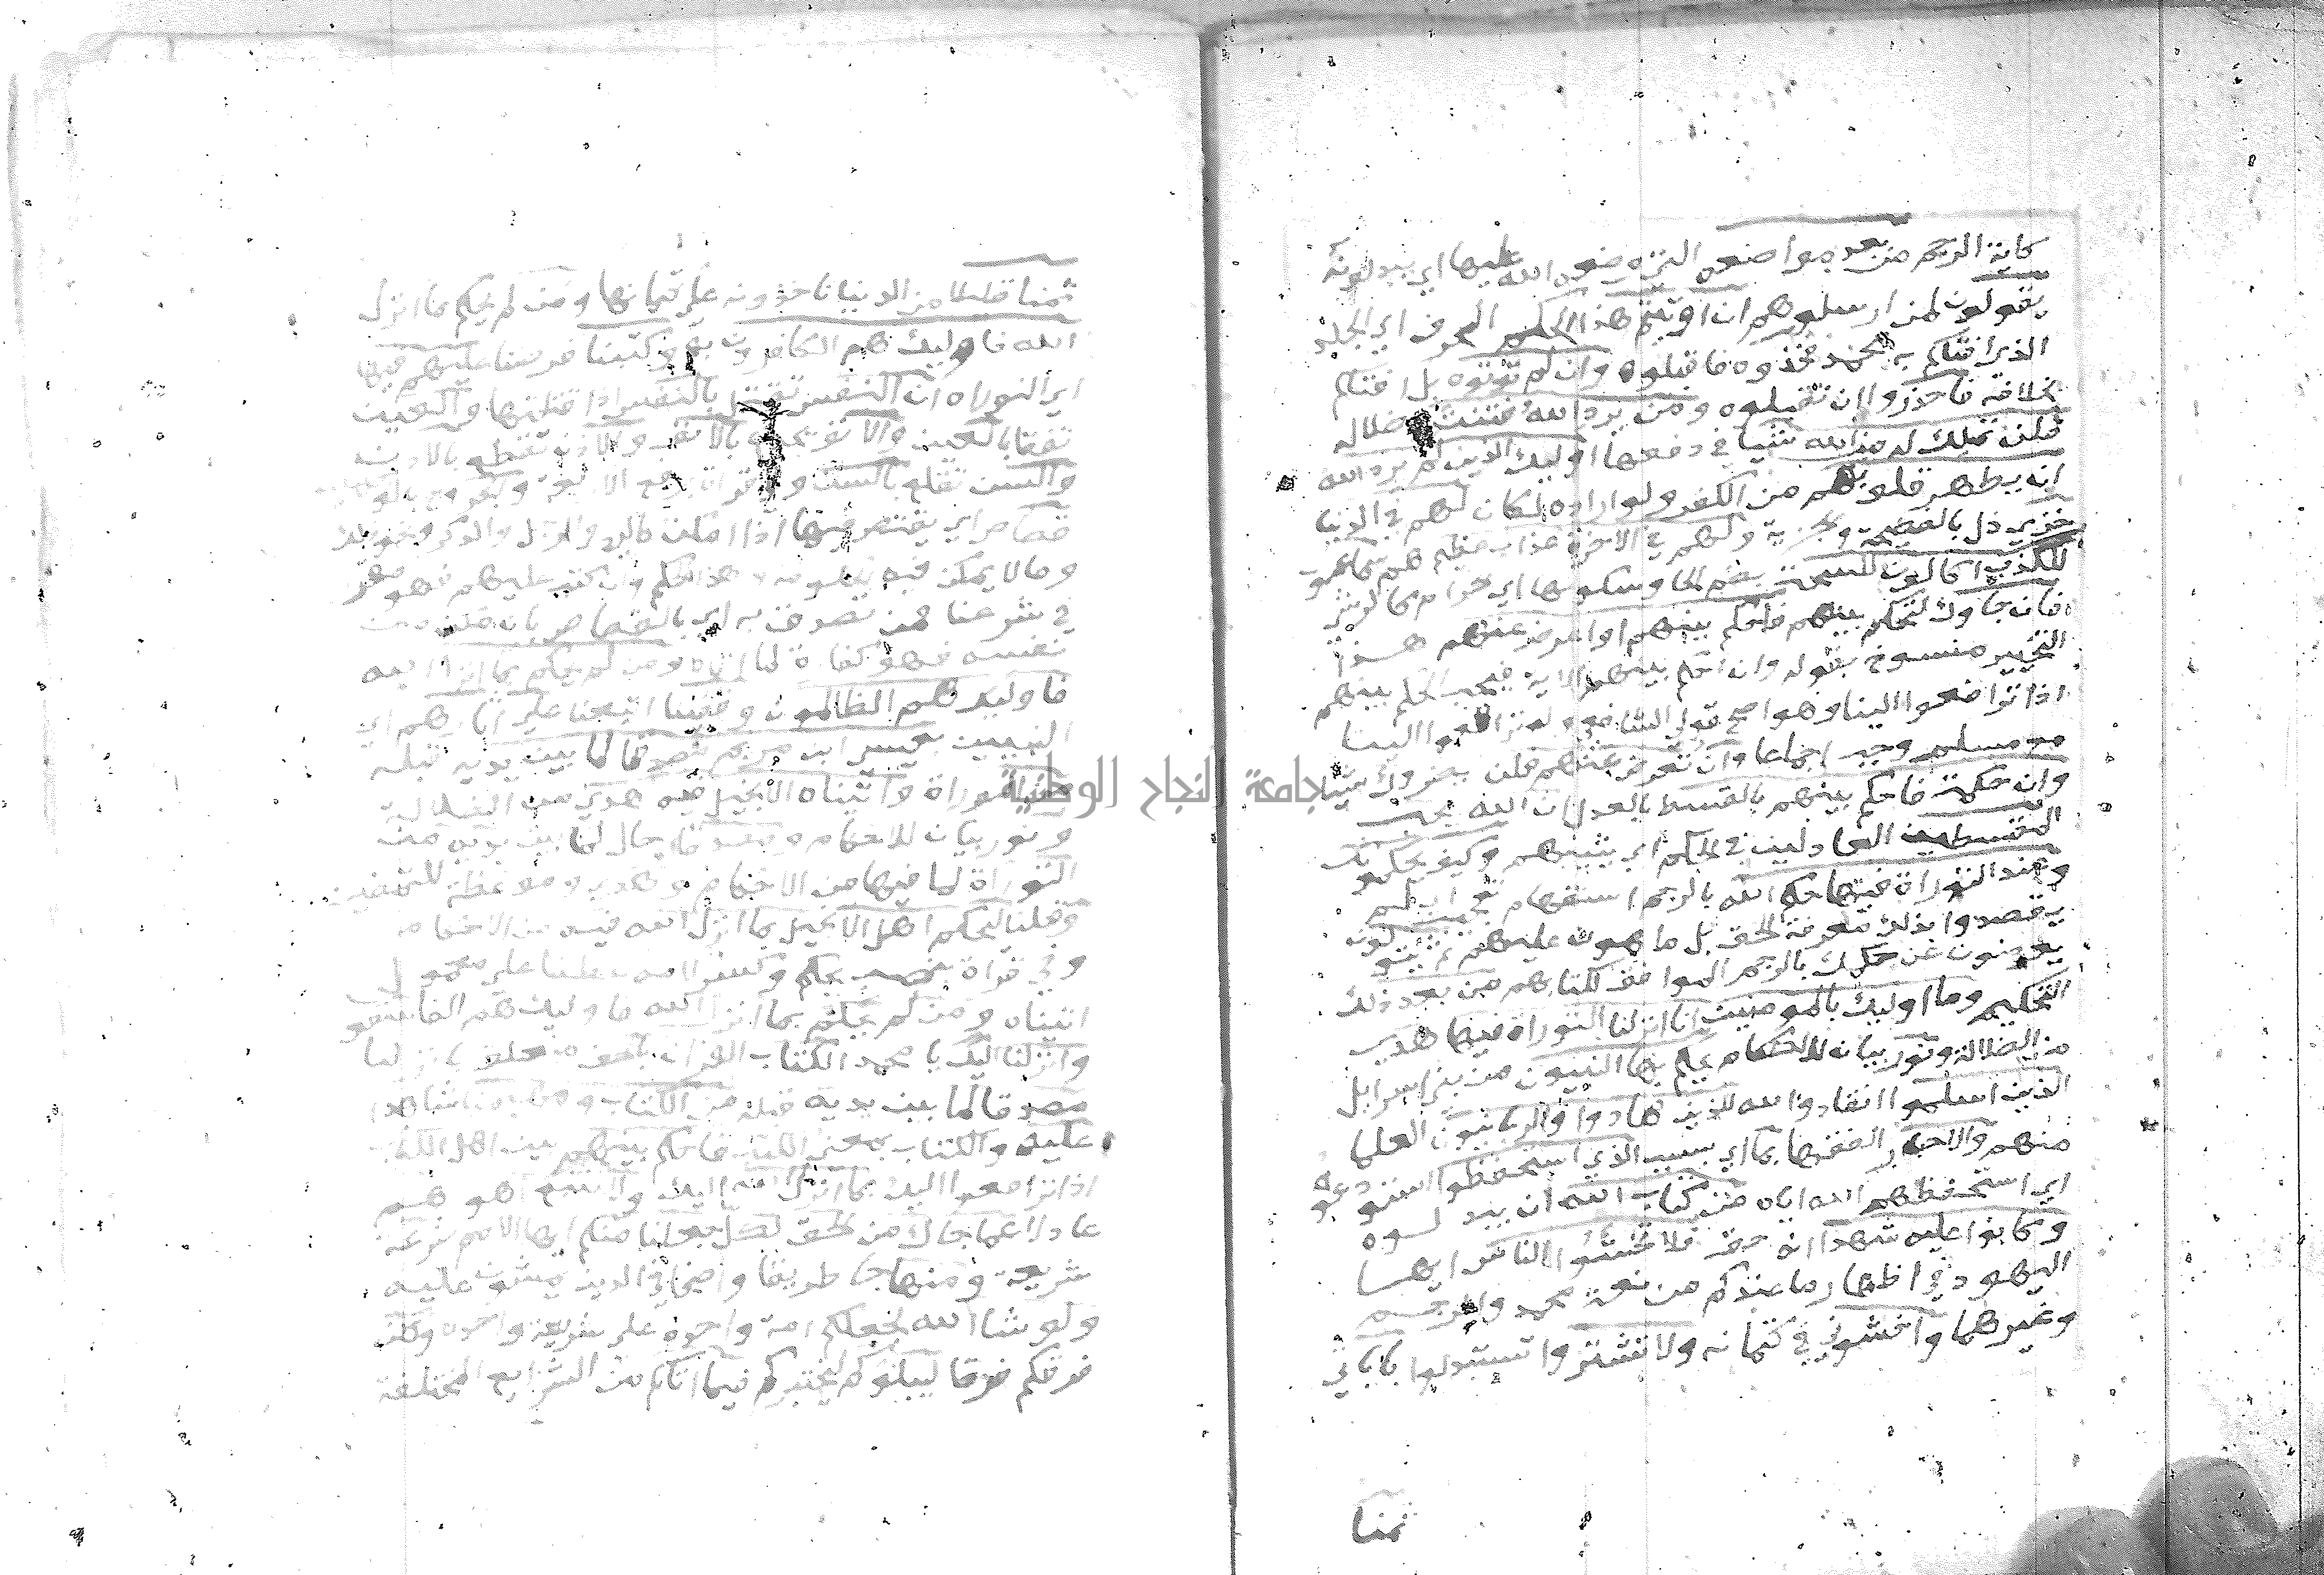 كاية الرجم من بعد مواضعه التي وضعه الله عليها اي يبدلونه
يقولون لمن ارسلوهم ان اوتيتم هذا الحكم المحرف اي الجلد
الذي افتاكم به محمد فخذوه فاقبلوه وان لم تؤتوه بل افتاكم
بخلافه فاحذروا ان تقبلوه ومن يرد الله فتنته ضلاله
فلن تملك له من الله شيا في دفعها اوليك الذين لم يرد الله
ان يطهر قلوبهم من الكفر ولو اراده لكان لهم في الدنيا
خزي ذل بالفضيحة والجزية ولهم في الاخرة عذاب عظيم هم سماعون
للكذب اكالون للسحت بضم الحا وسكونها اي الحرام كالرشي
فان جاوك لتحكم بينهم فاحكم بينهم او اعرض عنهم هذا
التخيير منسوخ بقوله وان احكم بينهم الاية فيجب الحكم بينهم
اذا ترافعوا الينا وهو اصح قولي الشافعي ولو ترافعوا الينا
مع مسلم وجب اجماعا وان تعرض عنهم فلن يضروك شيا
وان حكمت فاحكم بينهم بالقسط بالعدل ان الله يحب
المقسطين العادلين في الحكم اي يثيبهم وكيف يحكمونك
وعندهم التوراة فيها حكم الله بالرجم استفهام تعجيب اي لم
يقصدوا بذلك معرفة الحق بل ما هو اهون عليهم ثم يتولون
يعرضون عن حكمك بالرجم الموافق لكتابهم من بعد ذلك
التحكيم وما اوليك بالمومنين انا انزلنا التوراة فيها هدي
من الضلالة ونور بيان للاحكام يحكم بها النبيون من بني اسرايل
الذين اسلموا انقادوا لله للذين هادوا والربانيون العلما
منهم والاحبار الفقها بما اي بسبب الذي استحفظوا استودعوه
اي استحفظهم الله اياه من كتاب الله ان يبدلوه
وكانوا عليه شهدا انه حق فلا تخشوا الناس ايها
اليهود في اظهار ما عندكم من نعت محمد والرجم
وغيرهما واخشوني في كتمانه ولا تشتروا تستبدلوا باياتي
ثمنا
ثمنا قليلا من الدنيا تاخذونه علي كتمانها ومن لم يحكم بما انزل
الله فاوليك هم الكافرون به وكتبنا فرضنا عليهم فيها
اي التوراه ان النفس تقتل بالنفس اذا قتلتها والعين
تفقا بالعين والانف يجدع بالانف والاذن تقطع بالاذن
والسن تقلع بالسن وفي قراة برفع الاربعة والجروح بالوجهين
قصاص اي يقتص فيها اذا امكن كاليد والرجل والذكر ونحو ذلك
وما لا يمكن فيه الحكومة وهذا الحكم وان كتب عليهم فهو مقرر
في شرعنا فمن تصدق به اي بالقصاص بان مكن من
نفسه فهو كفارة له لما اتاه ومن لم يحكم بما انزل الله
فاوليك هم الظالمون وقفينا اتبعنا علي اثارهم اي
النبيين بعيسي ابن مريم مصدقا لما بين يديه قبله
من التوراة واتيناه الانجيل فيه هدي من الضلالة
جامعة النجاح الوطنية
ونور بيان للاحكام ومصدقا حال لما بين يديه من
التوراة لما فيها من الاحكام وهدي وموعظة للمتقين
وقلنا ليحكم اهل الانجيل بما انزل الله فيه من الاحكام
وفي قراة بنصب يحكم وكسر لامه عطفا علي معمول
اتيناه ومن لم يحكم بما انزل الله فاوليك هم الفاسقون
وانزلنا اليك يا محمد الكتاب القران بالحق متعلق بانزلنا
مصدقا لما بين يديه قبله من الكتاب ومهيمنا شاهدا
عليه والكتاب بمعني الكتب فاحكم بينهم بين اهل الكتاب
اذا ترافعوا اليك بما انزل الله اليك ولا تتبع اهواهم
عادلا عما جاك من الحق لكل جعلنا منكم ايها الامم شرعة
شريعة ومنهاجا طريقا واضحا في الدين يمشون عليه
ولو شا الله لجعلكم امة واحدة علي شريعة واحدة ولكن
فرقكم فرقا ليبلوكم ليختبركم فيما اتاكم من الشرايع المختلفة